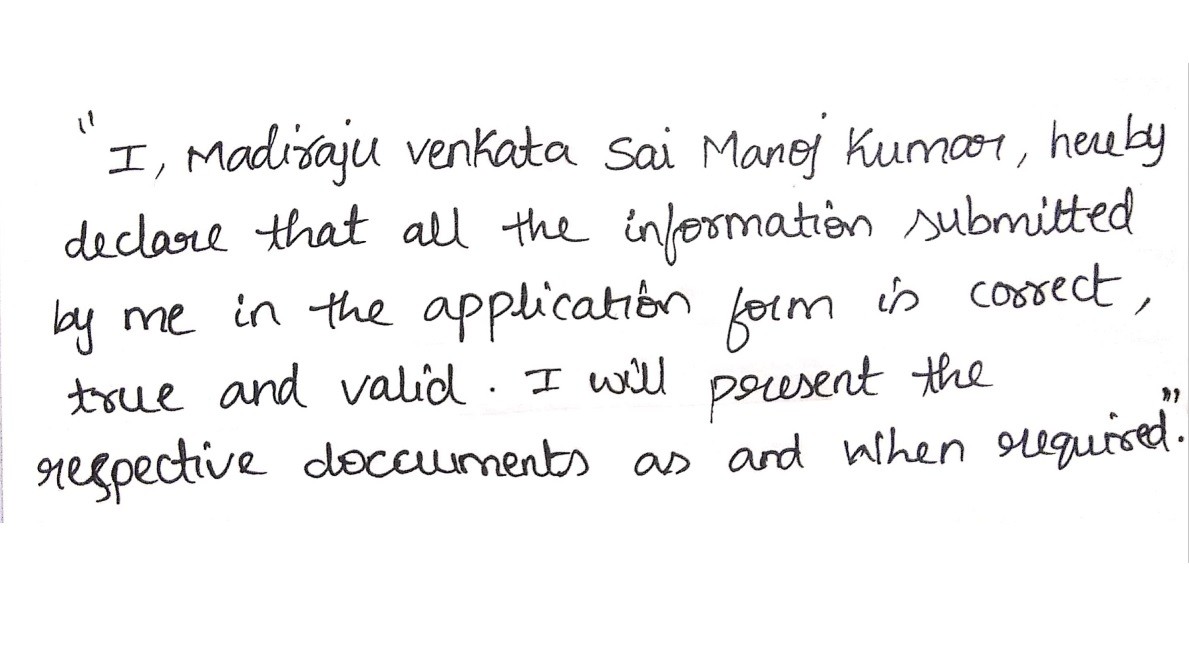 "I, Madiraju venkata Sai Manoj Kumar, hereby
declare that all the information submitted
by me in the application form is correct,
true and valid. I will present the
respective doccuments as and when required."